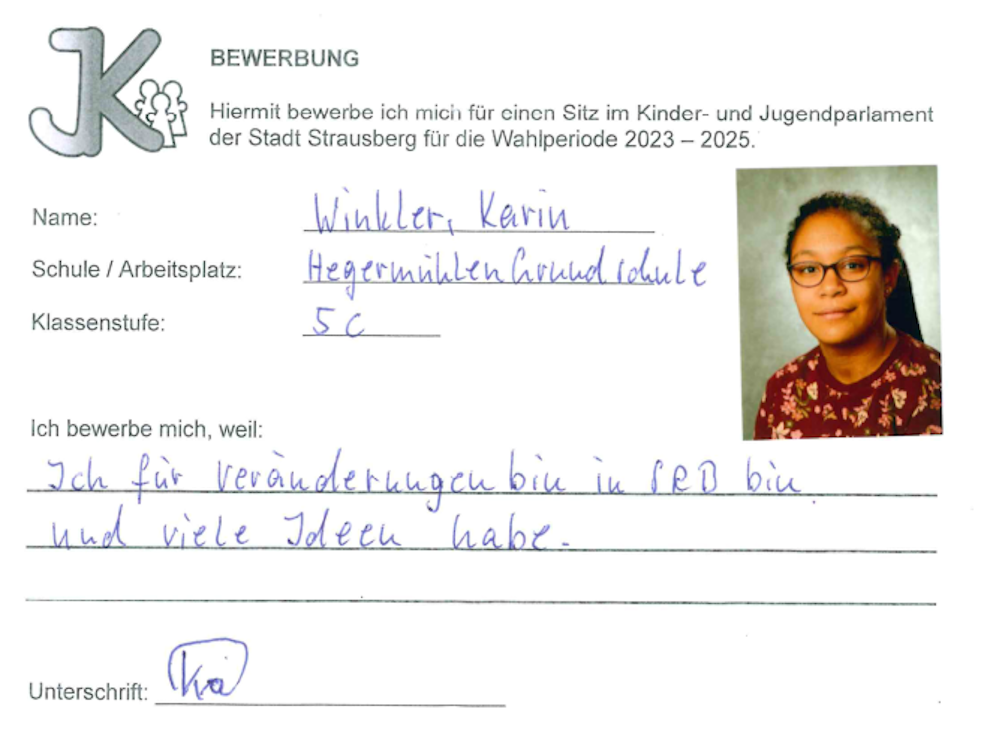 JK
BEWERBUNG
Hiermit bewerbe ich mich für einen Sitz im Kinder- und Jugendparlament
der Stadt Strausberg für die Wahlperiode 2023 – 2025.
Name: Winkler, Karin
Schule / Arbeitsplatz: Hegermühlen Grundschule
Klassenstufe: 5 c
Ich bewerbe mich, weil:
Ich für veränderungen bin in SRB bin
und viele Ideen habe.
Unterschrift: Ka